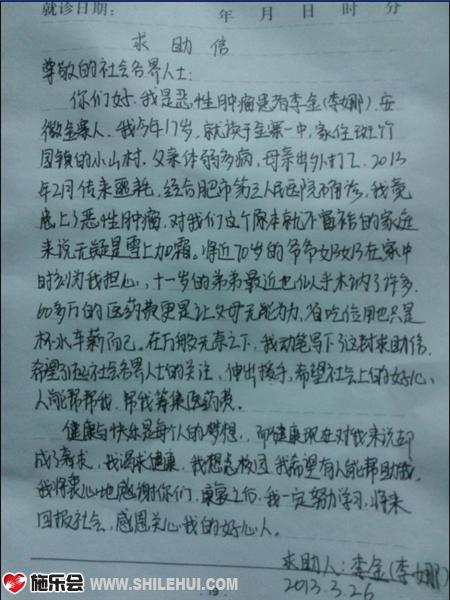 就诊日期: 年 月 日 时 分
求助信
尊敬的社会各界人士:
你们好,我是恶性肿瘤患者李金(李娜),安
徽金寨人,我今年17岁,就读于金寨一中,家住斑竹
园镇的小山村,父亲体弱多病,母亲出外打工,2013
年2月传来噩耗,经合肥市第三人民医院确诊,我竟
患上了恶性肿瘤,对我们这个原本就不富裕的家庭
来说无疑是雪上加霜。将近70岁的爷爷奶奶在家中
时刻为我担心,十一岁的弟弟最近也似乎木讷了许多.
60多万的医药费更是让父母无能为力,省吃俭用也只是
杯水车薪而已。在万般无奈之下,我动笔写下了这封求助信,
希望引起社会各界人士的关注,伸出援手,希望社会上的好心
人能帮帮我,帮我筹集医药费。
健康与快乐是每个人的梦想,而健康现在对我来说却
成了奢求,我渴求健康,我想念校园,我希望有人能帮助我,
我将衷心地感谢你们,康复之后,我一定努力学习,将来
回报社会,感恩关心我的好心人。
求助人:李金(李娜)
2013.3.26
施乐会 WWW.SHILEHUI.COM